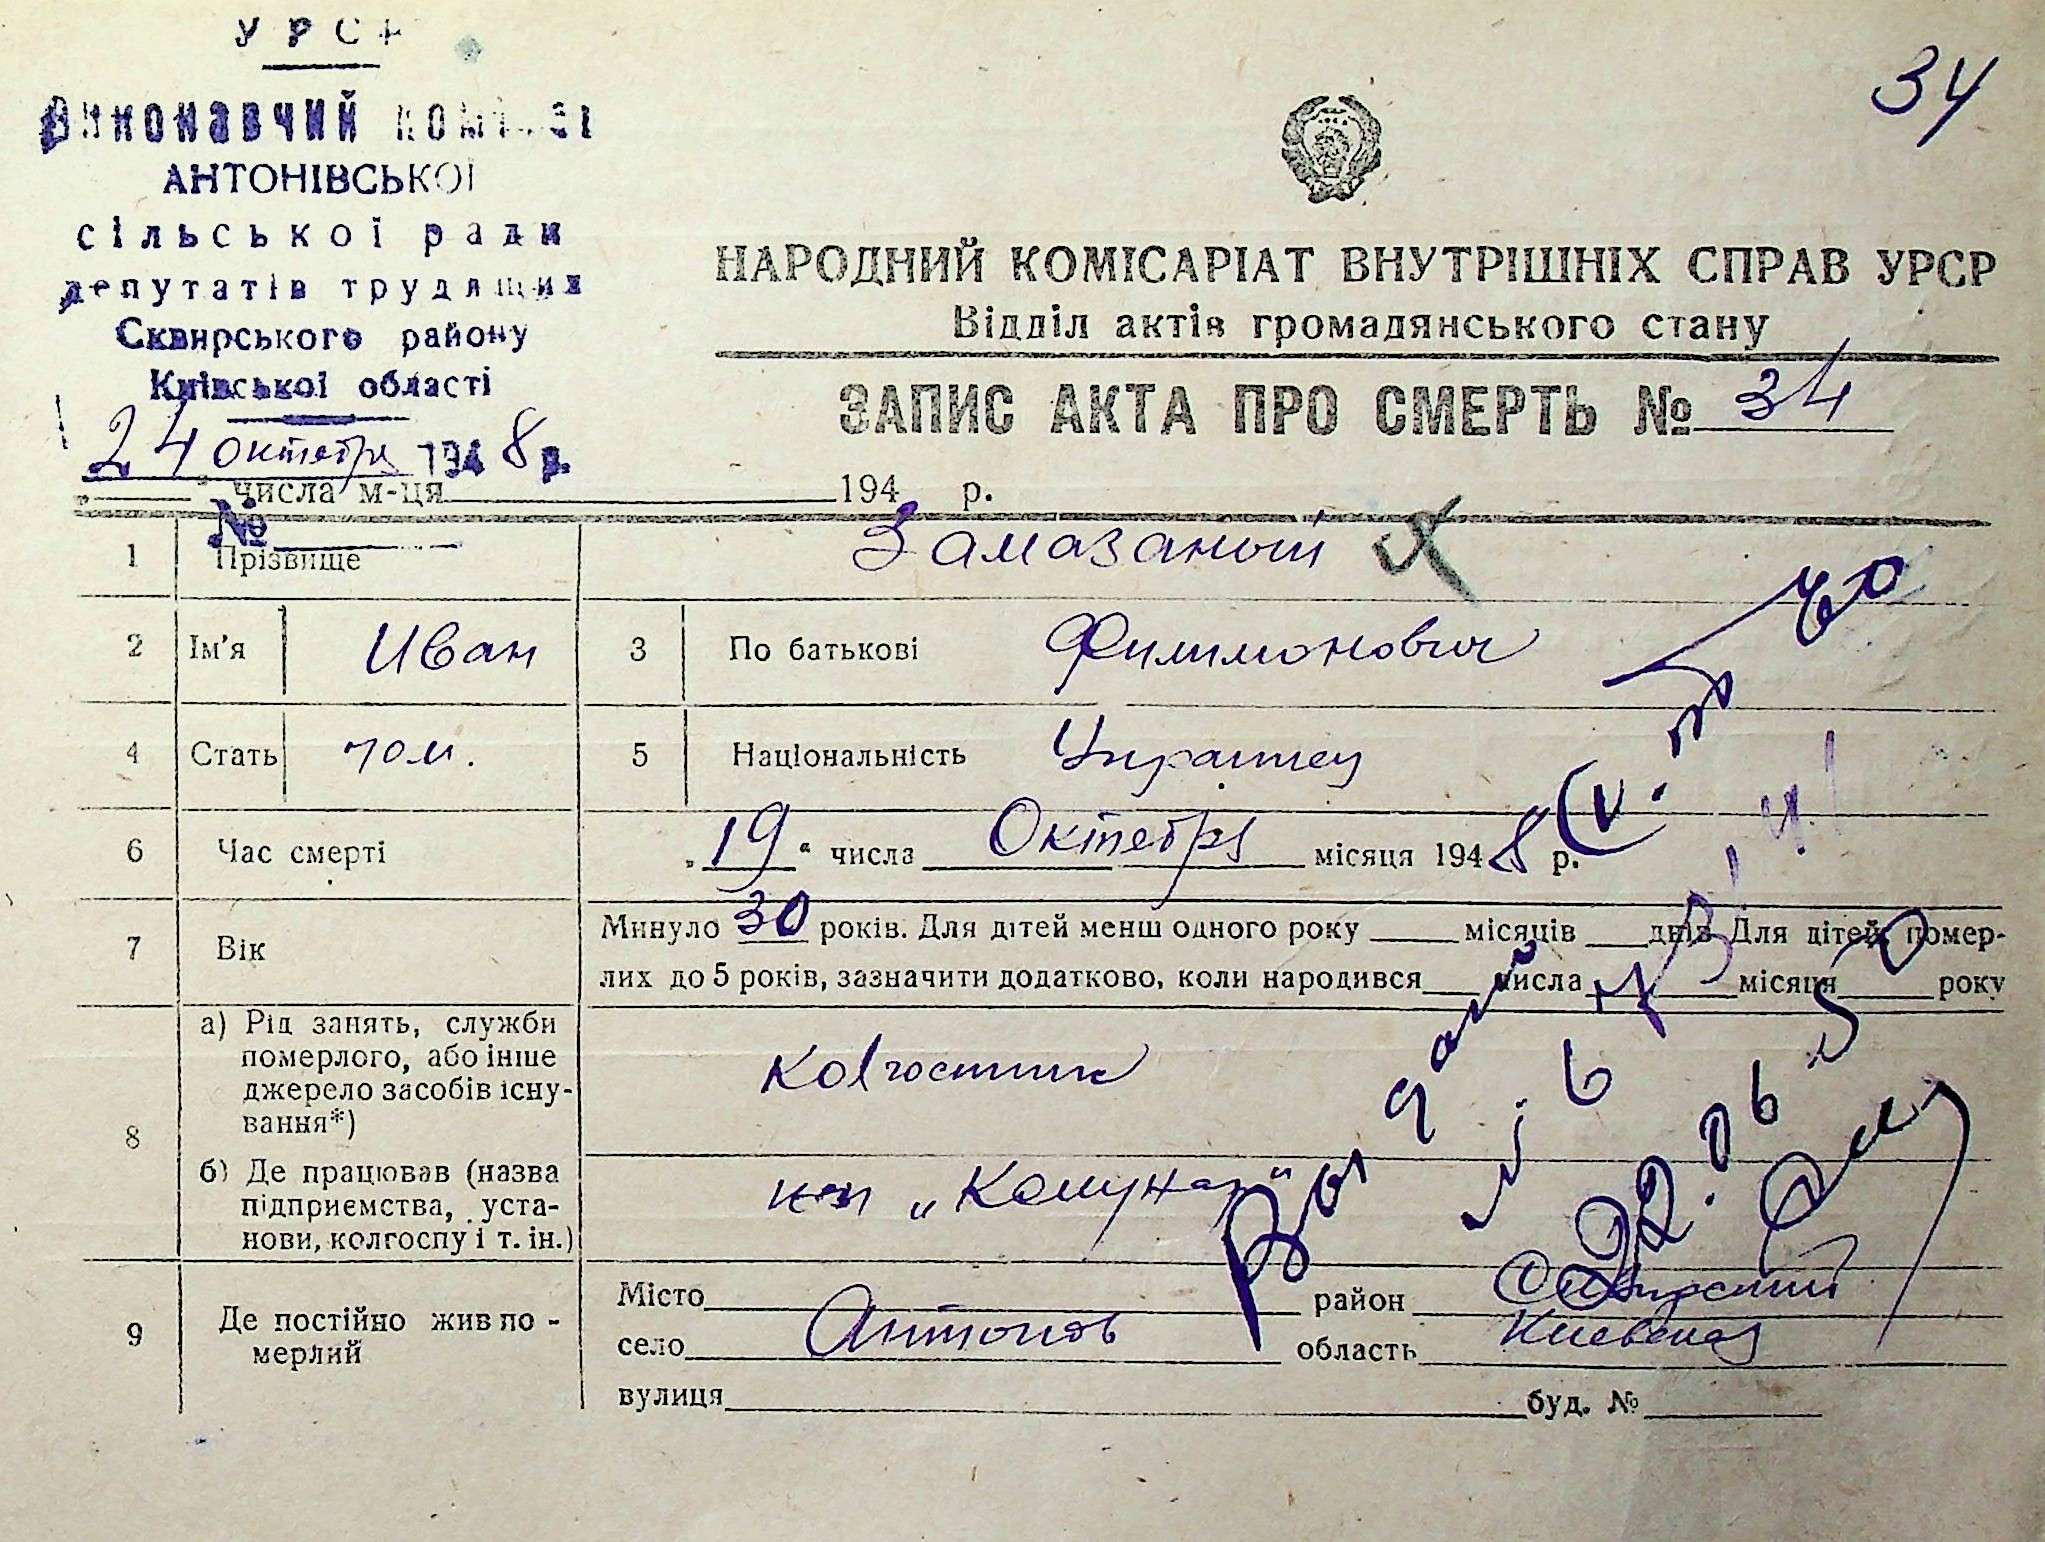 УРСР
34
Виконавчий комітет
АНТОНІВСЬКОЇ
сільської ради
депутатів трудящих
Сквирського району
Київської області
24 октебря 1948 р.
№
НАРОДНИЙ КОМІСАРІАТ ВНУТРІШНІХ СПРАВ УРСР
Відділ актів громадянського стану
ЗАПИС АКТА ПРО СМЕРТЬ № 34
„ " числа м-ця 194 р.
1 Прізвище Замазаный
2 Ім'я Иван 3 По батькові Филимонович
4 Стать чол. 5 Національність Украинец
6 Час смерті „19" числа Октебря місяця 1948 р.
7 Вік Минуло 30 років. Для дітей менш одного року місяців днів. Для дітей, помер-
лих до 5 років, зазначити додатково, коли народився числа місяця року
8 а) Рід занять, служби
померлого, або інше
джерело засобів існу-
вання*)
колгоспник
б) Де працював (назва
підприємства, уста-
нови, колгоспу і т. ін.)
кп „Комунар"
9 Де постійно жив по-
мерлий
Місто район Сквирский
село Антонов область Киевская
вулиця буд. №
Выдано
22.06.50